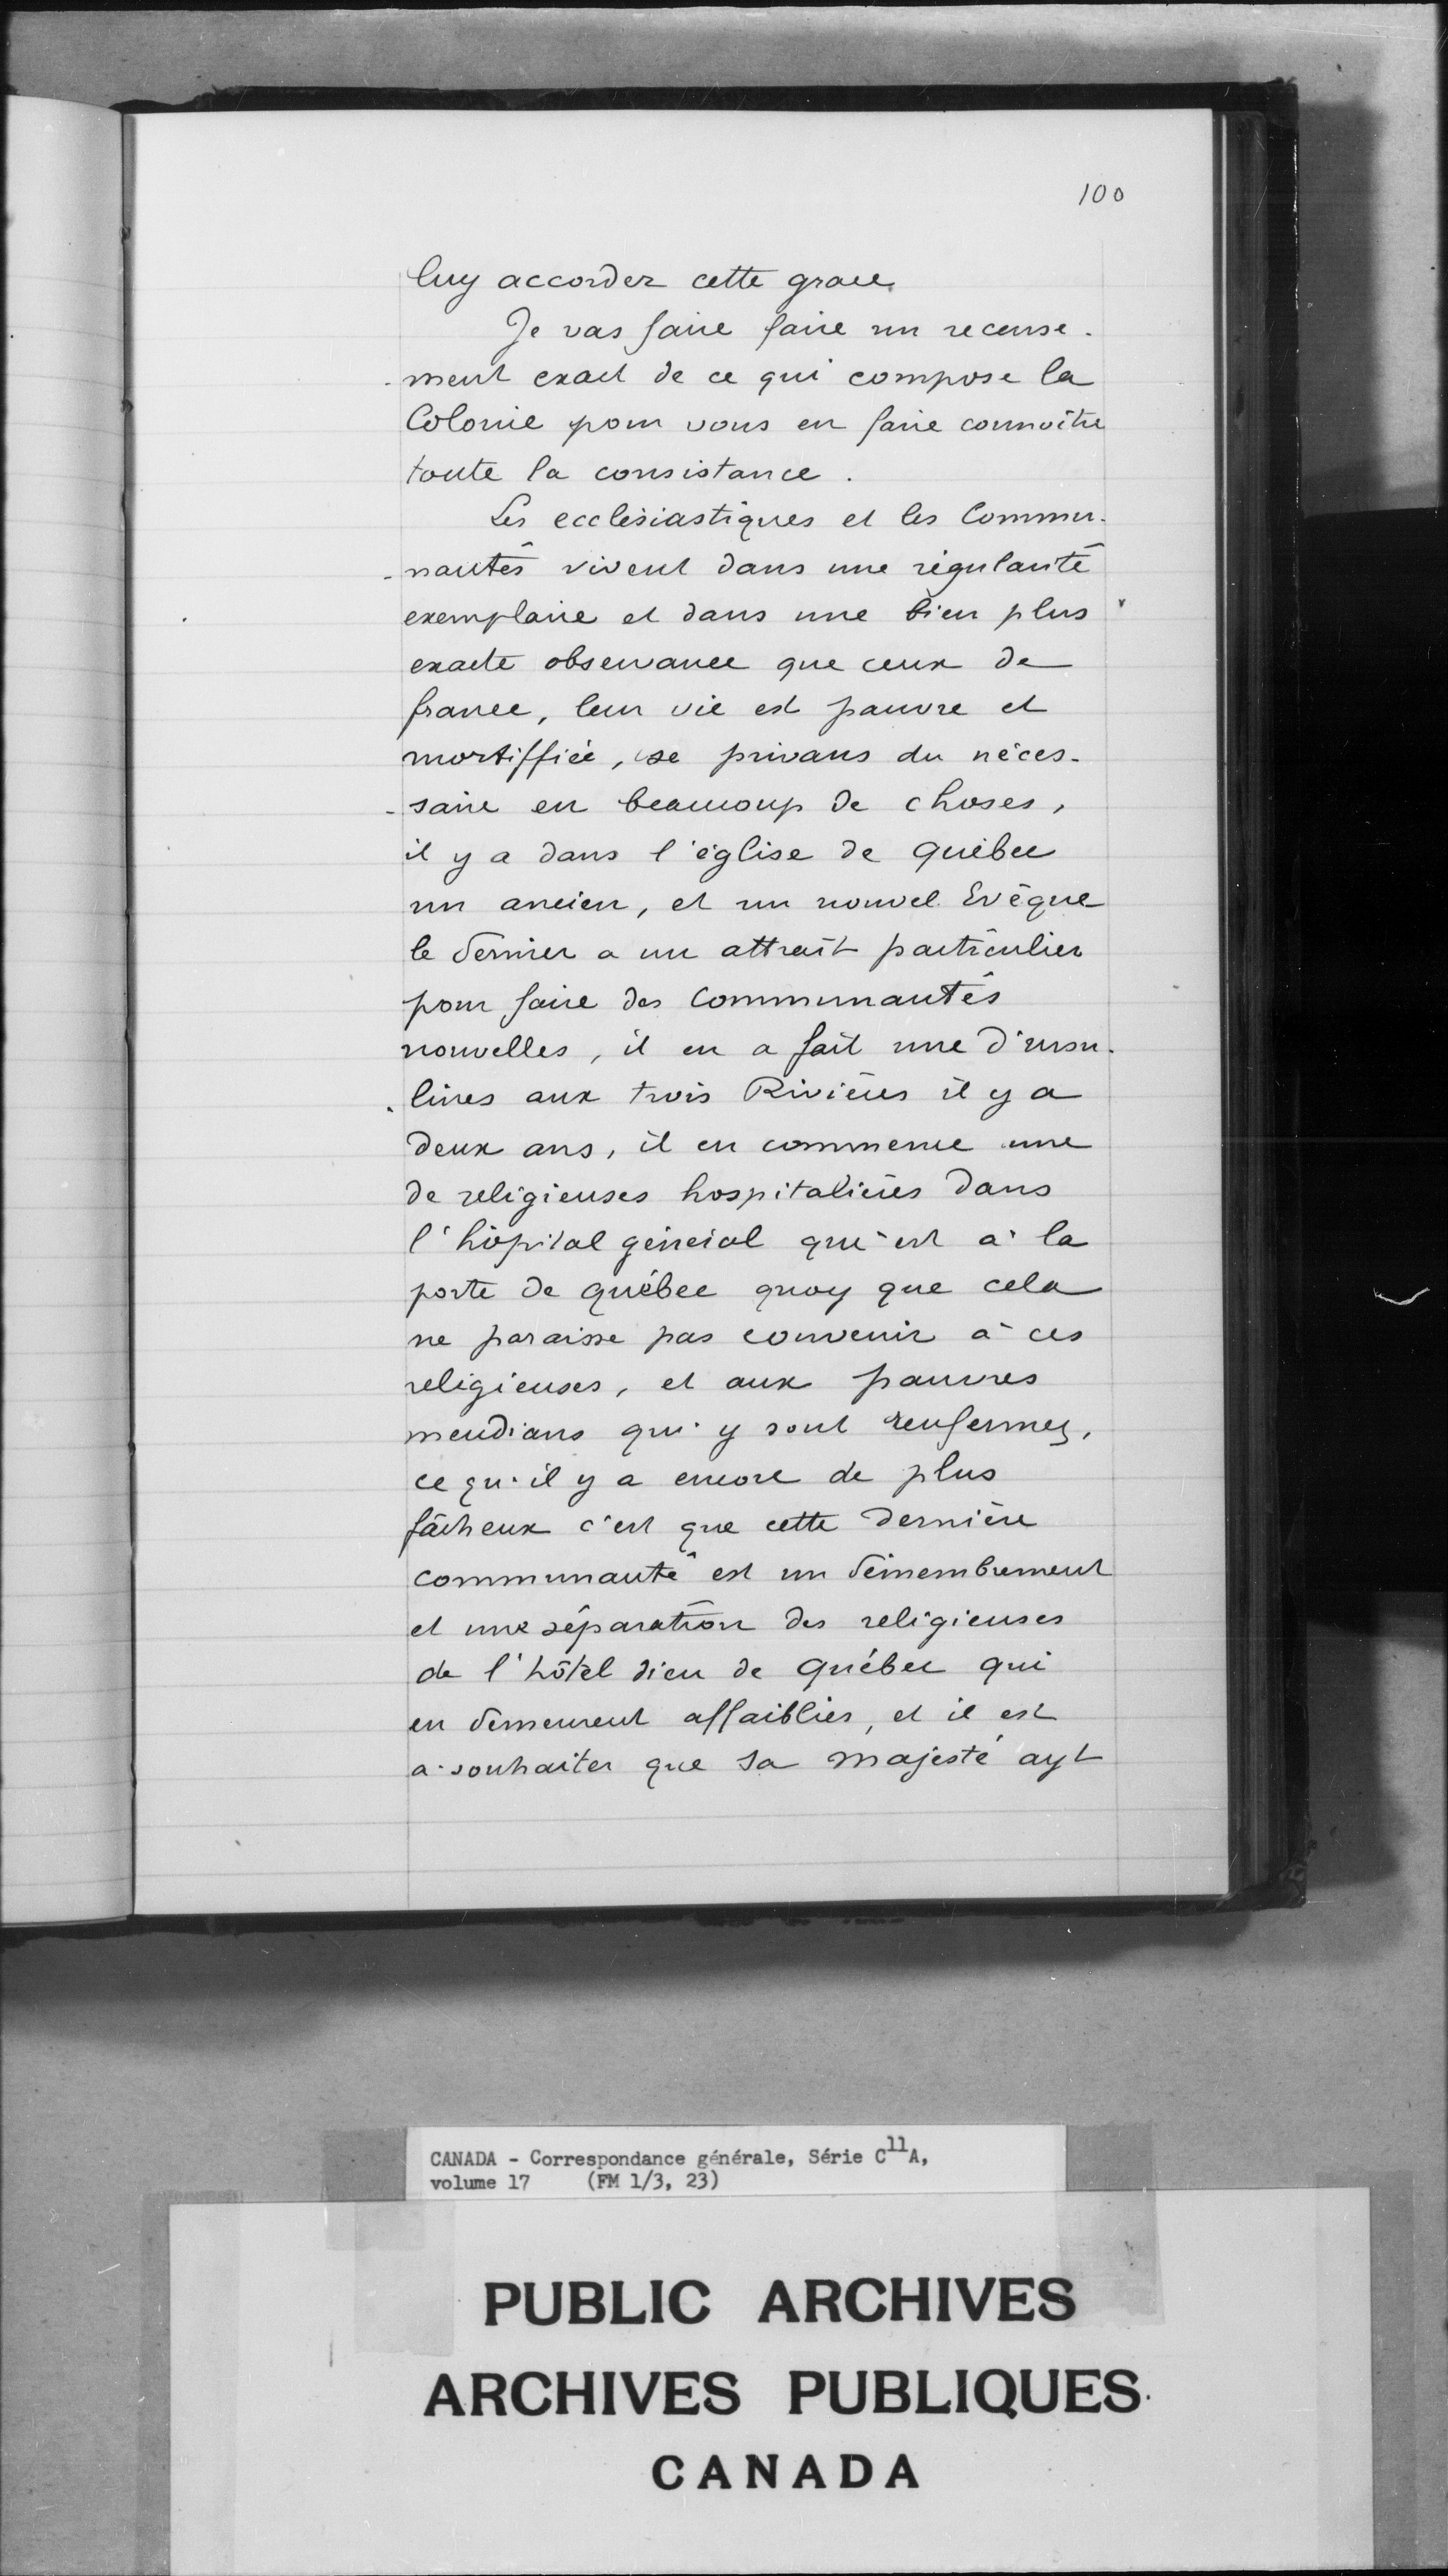 100
luy accorder cette grace
Je vas faire faire un recense-
-ment exact de ce qui compose la
Colonie pour vous en faire connoître
toute la consistance.
Les ecclésiastiques et les Commu-
-nautés vivent dans une régularité
exemplaire et dans une bien plus
exacte observance que ceux de
france, leur vie est pauvre et
mortiffiée, se privans du néces-
-saire en beaucoup de choses,
il y a dans l'église de québec
un ancien, et un nouvel Evêque
le dernier a un attrait particulier
pour faire des Communautés
nouvelles, il en a fait une d'ursu-
-lines aux trois Rivières il y a
deux ans, il en commence une
de religieuses hospitalières dans
l'hôpital général qui est à la
porte de québec quoy que cela
ne paraisse pas convenir à ces
religieuses, et aux pauvres
mendians qui y sont renfermez,
ce qu'il y a encore de plus
fâcheux c'est que cette dernière
communauté est un démembrement
et une séparation des religieuses
de l'hôtel dieu de québec qui
en demeurent affaiblies, et il est
a souhaiter que sa majesté ayt
CANADA - Correspondance générale, Série C11A,
volume 17 (FM 1/3, 23)
PUBLIC ARCHIVES
ARCHIVES PUBLIQUES
CANADA